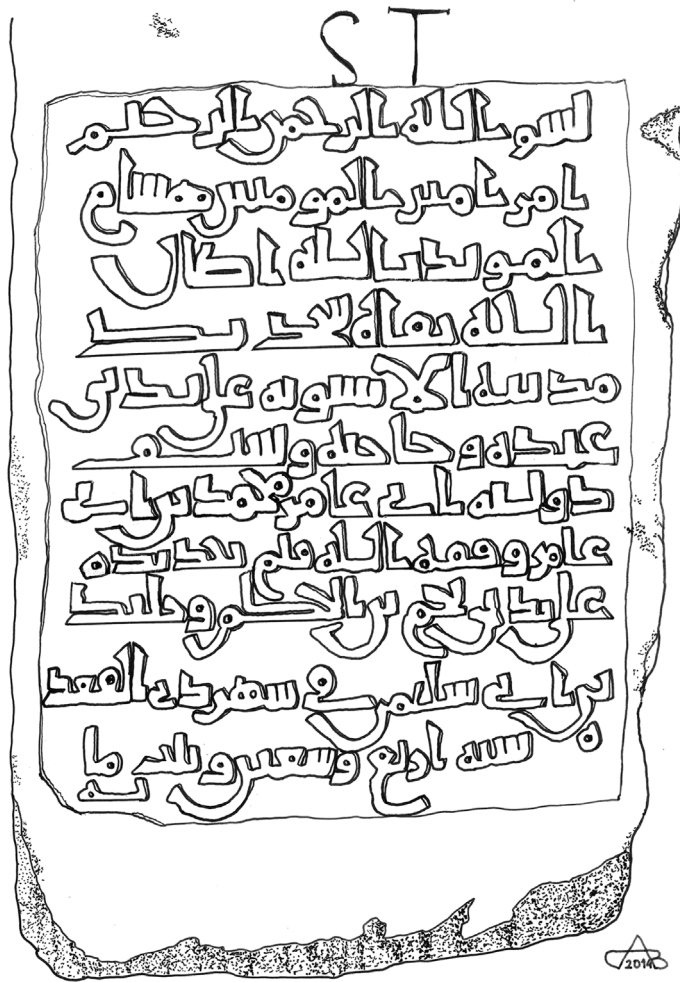 S T
بسم الله الرحمن الرحيم
امر امير المومنين هشام
المويد بالله اطال
الله بقاه بتجديد
مدينه الاسبونه على يدى
عبده وحاجبه وسيف
دولته ابى عامر محمد بن ابى
عامر وفقه الله فتم تجديده
على يدى بن الحكم
بن ابى سليمن فى شهر ذى القعد
ه سنه اربع وسبعين وثلث ما
يه
2014